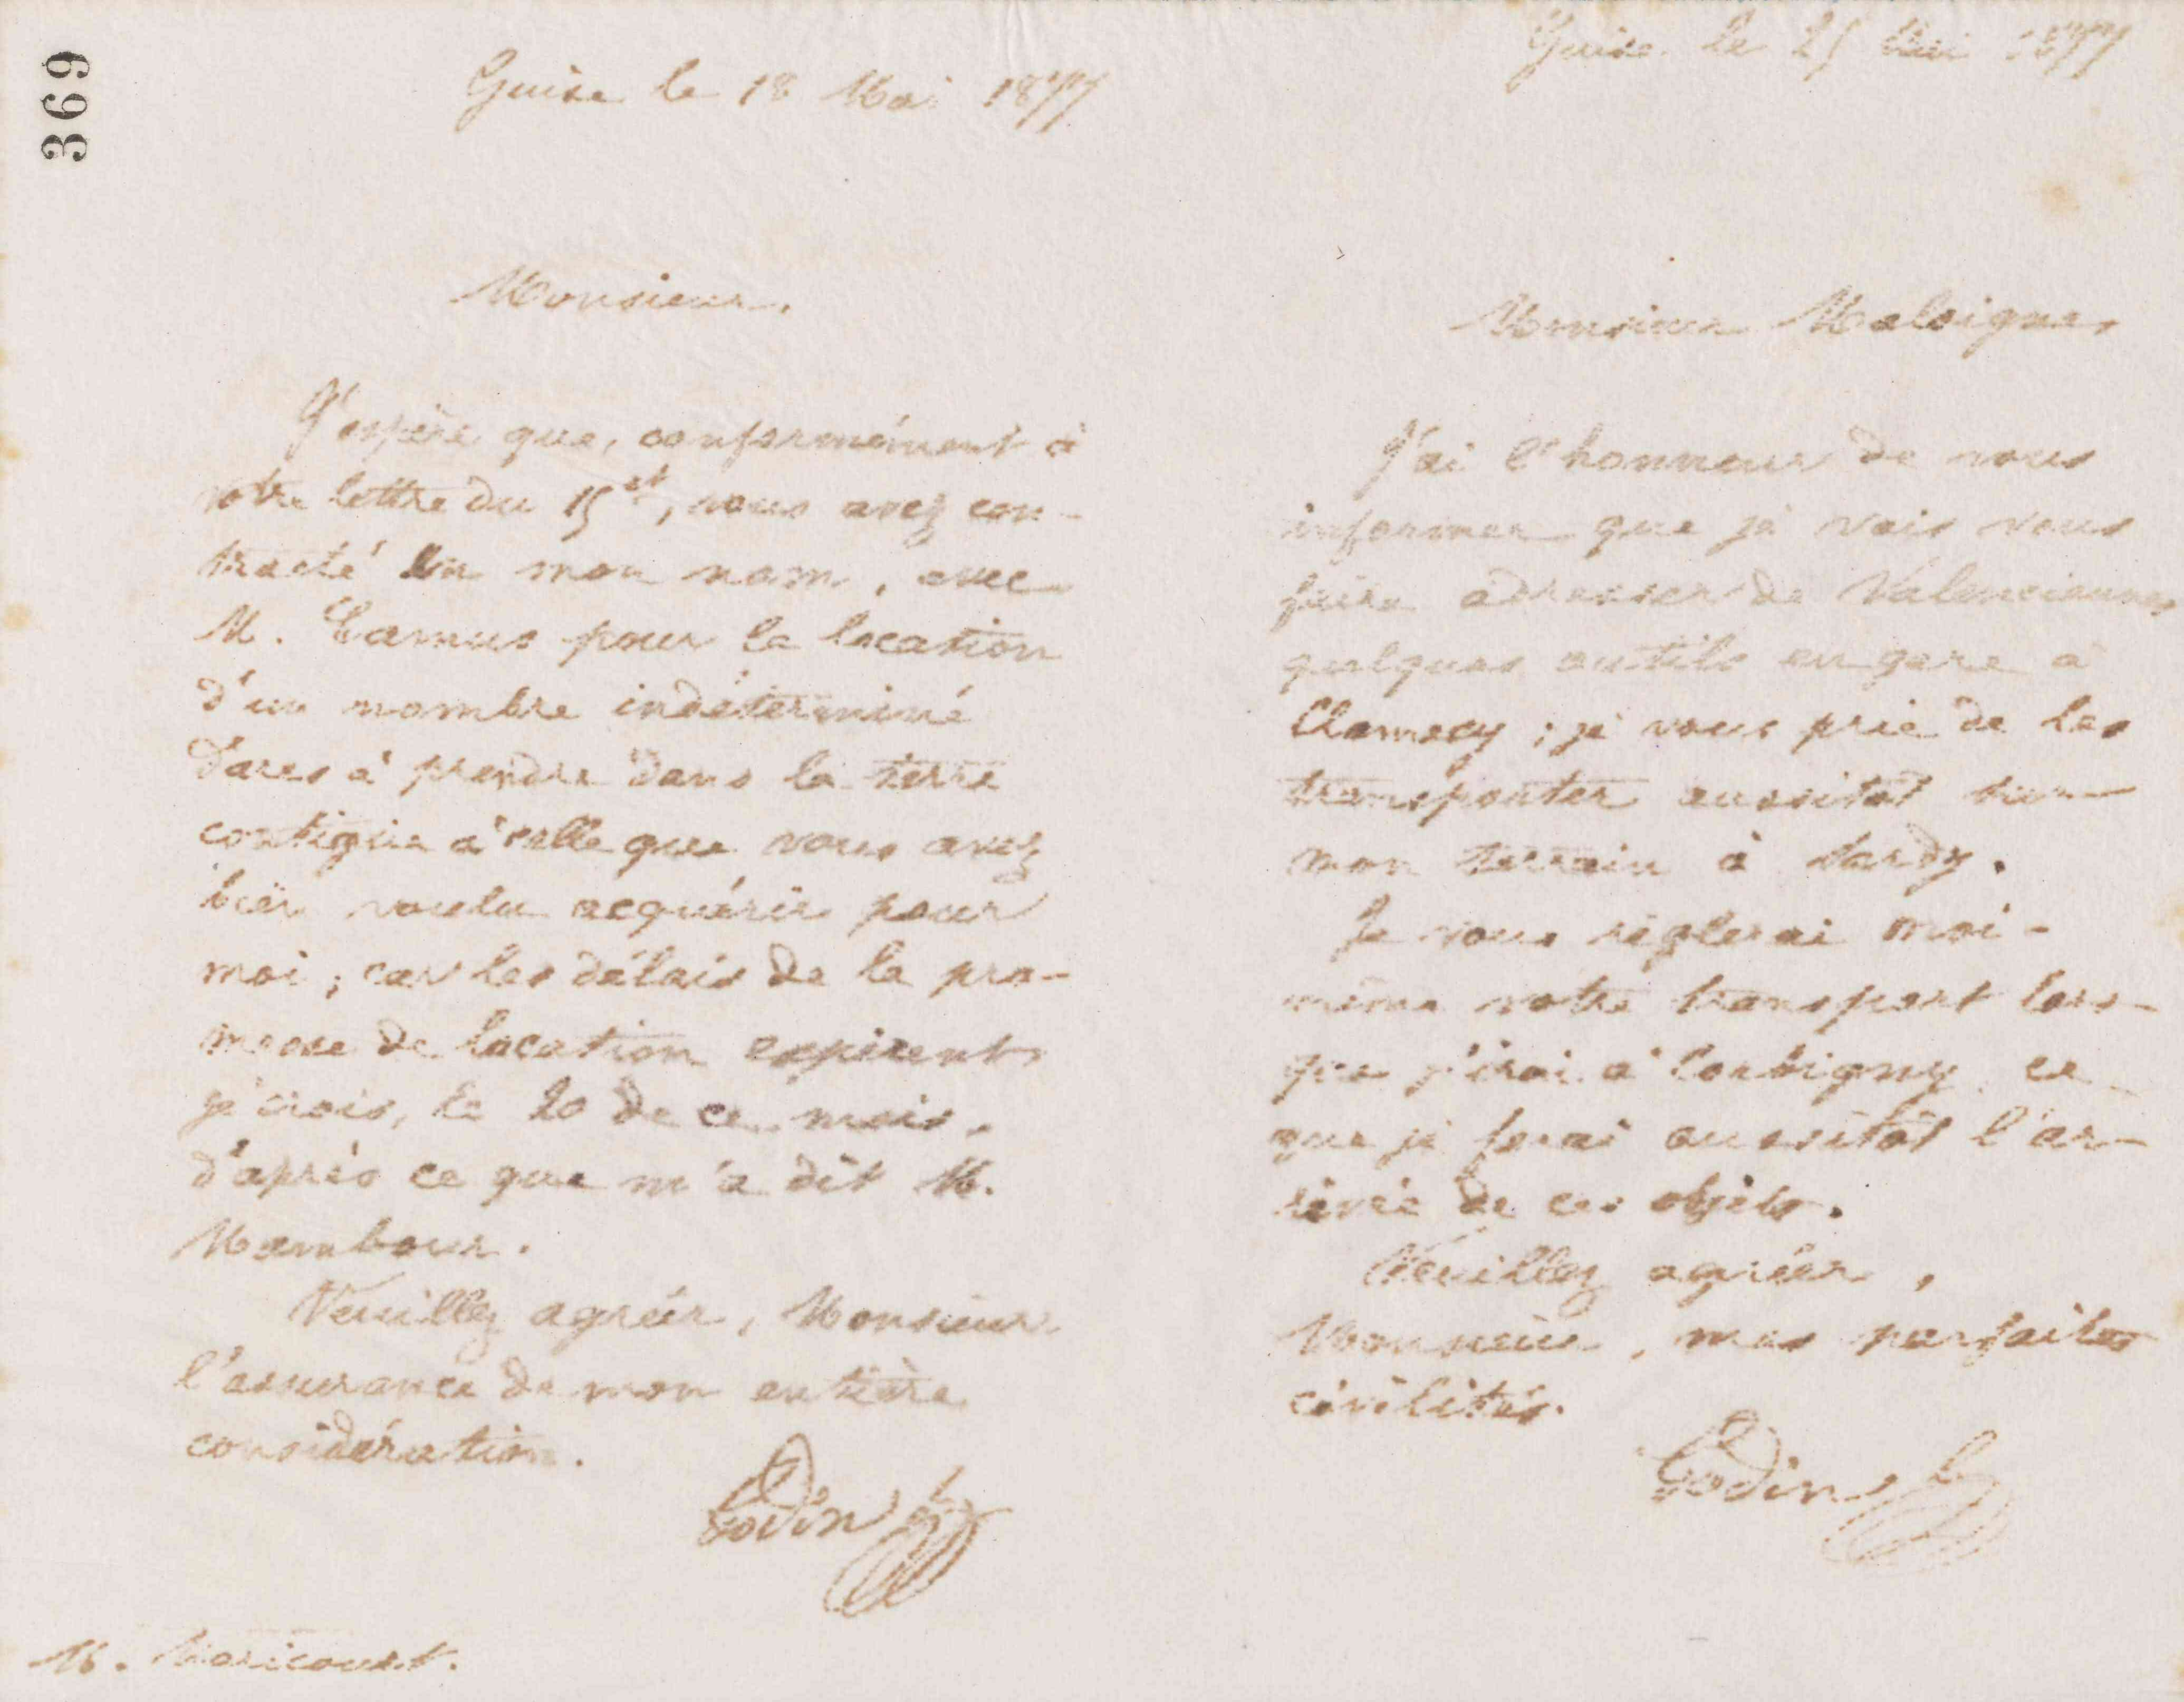 369
Guise le 18 Mai 1877
Monsieur.
J'espère que, conformément à
votre lettre du 15 ct, vous avez con-
tracté en mon nom, avec
M. Camus pour la location
d'un nombre indéterminé
d'ares à prendre dans la terre
contigüe à celle que vous avez
bien voulu acquérir pour
moi ; car les délais de la pro-
messe de location expirent,
je crois, le 20 de ce mois,
d'après ce que m'a dit M.
Mambour.
Veuillez agréer, Monsieur
l'assurance de mon entière
considération.
Godin
M. Maricourt.
Guise le 25 Mai 1877
Monsieur Maloigne,
J'ai l'honneur de vous
informer que je vais vous
faire adresser de Valenciennes
quelques outils en gare à
Clamecy ; je vous prie de les
transporter aussitôt sur
mon terrain à Sardy.
Je vous règlerai moi-
même votre transport lors-
que j'irai à Corbigny ce
que je ferai aussitôt l'ar-
rivée de ces objets.
Veuillez agréer,
Monsieur, mes parfaites
civilités.
Godin